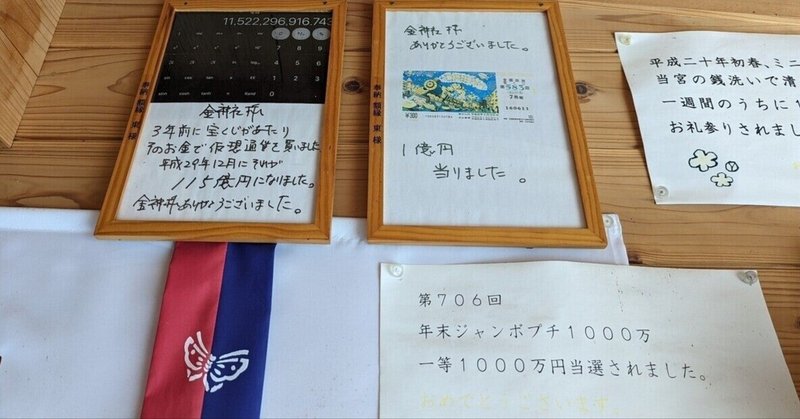 11,522,296,916.743
7 8 9
金神社様
3年前に宝くじがあたり
そのお金で仮想通貨を買いました
平成29年12月にそれが
115億円になりました。
金神様ありがとうございました。
奉納 額縁 東様
金神社様
ありがとうございました。
第583回
160413
¥300
1億円
当りました。
奉納 額縁 東様
平成二十年初春、ミニ
当宮の銭洗いで清
一週間のうちに
お礼参りされまし
第706回
年末ジャンボプチ1000万
一等1000万円当選されました。
おめでとうございます